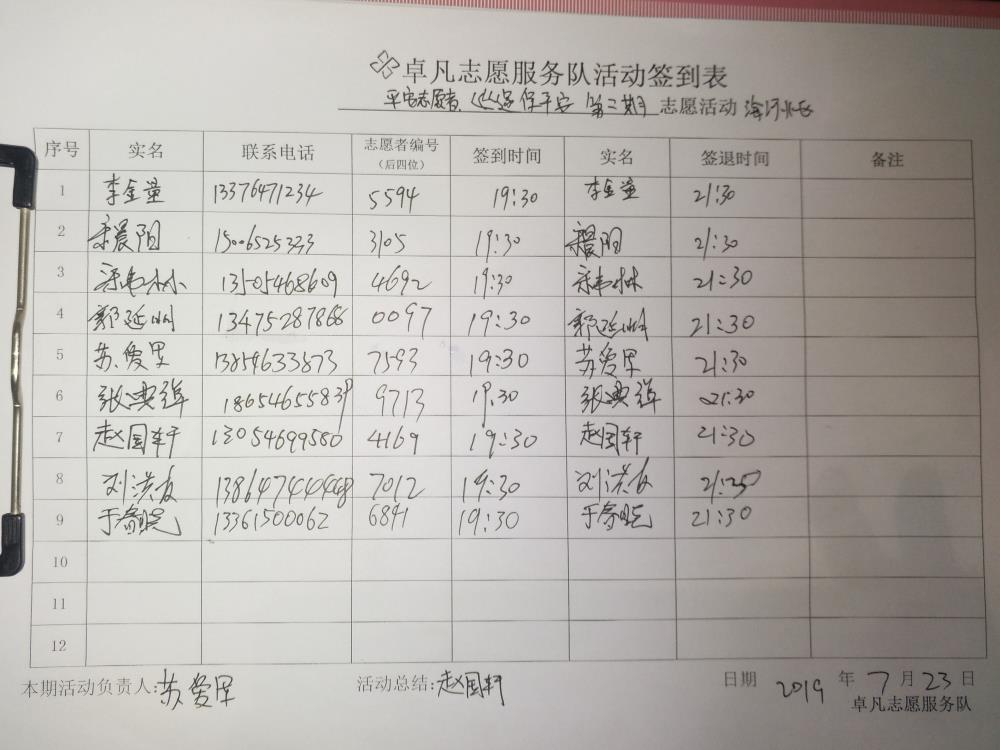 卓凡志愿服务队活动签到表
平安志愿者 巡逻保平安 第二期 志愿活动
序号 实名 联系电话 志愿者编号（后四位） 签到时间 实名 签退时间 备注
1 李金董 13376471234 5594 19:30 李金董 21:30
2 晨阳 15006525333 3105 19:30 21:30
3 林 13505468609 4692 19:30 林 21:30
4 郭延 13475287866 0097 19:30 郭延 21:30
5 苏爱军 13854633873 7593 19:30 苏爱军 21:30
6 张 18654655839 9713 19:30 张 21:30
7 赵国轩 13054699580 4169 19:30 赵国轩 21:30
8 刘洪友 7012 19:30 刘洪友
9 于春晓 13361500062 6841 19:30 于春晓 21:30
10
11
12
本期活动负责人:苏爱军 活动总结:赵国轩 日期 2019 年 7 月 23 日
卓凡志愿服务队